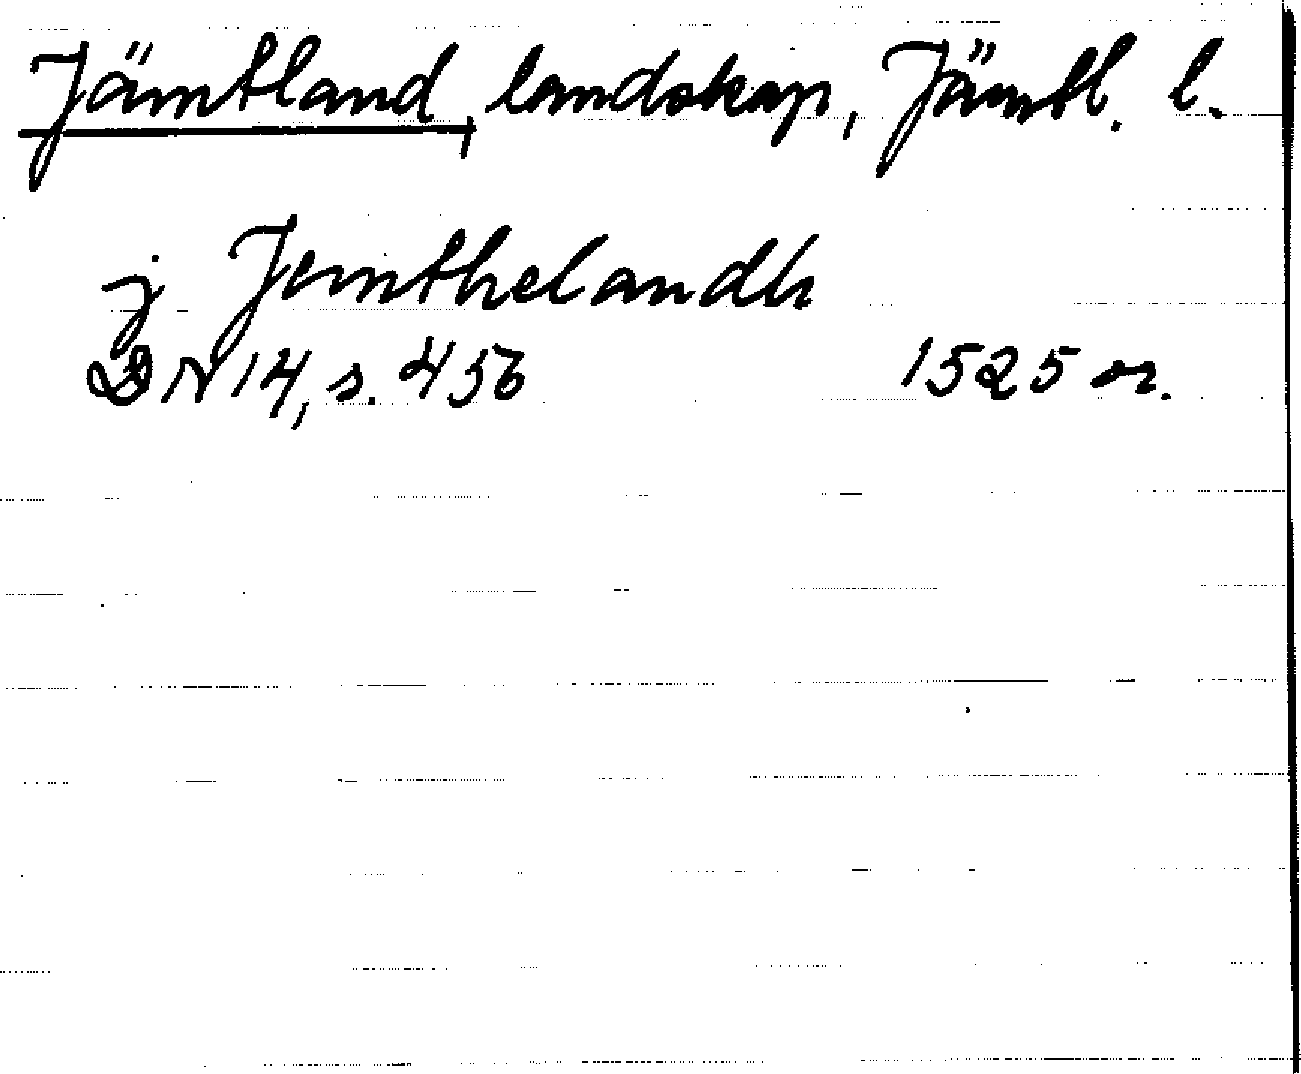 Jämtland, landskap, Jämtl. l.
j Jemthelandh
DN 14, s. 456 1525 or.